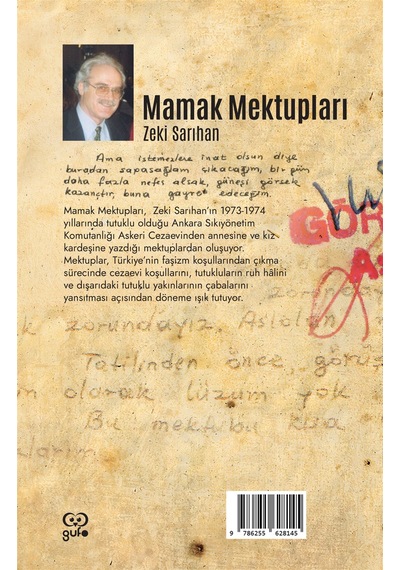 Mamak Mektupları
Zeki Sarıhan
Ama istemezlere inat olsun diye
buradan sapasağlam çıkacağım, bir gün
daha fazla nefes alsak, güneşi görsek
kazançtır, buna gayret edeceğim.
Mamak Mektupları, Zeki Sarıhan'ın 1973-1974
yıllarında tutuklu olduğu Ankara Sıkıyönetim
Komutanlığı Askeri Cezaevinden annesine ve kız
kardeşine yazdığı mektuplardan oluşuyor.
Mektuplar, Türkiye'nin faşizm koşullarından çıkma
sürecinde cezaevi koşullarını, tutukluların ruh hâlini
ve dışarıdaki tutuklu yakınlarının çabalarını
yansıtması açısından döneme ışık tutuyor.
GÖR
k zorundayız. Aslolan
Tatilinden önce, görüş
olarak lüzum yok
Bu mektubu kısa
gufo
9 786255 628145